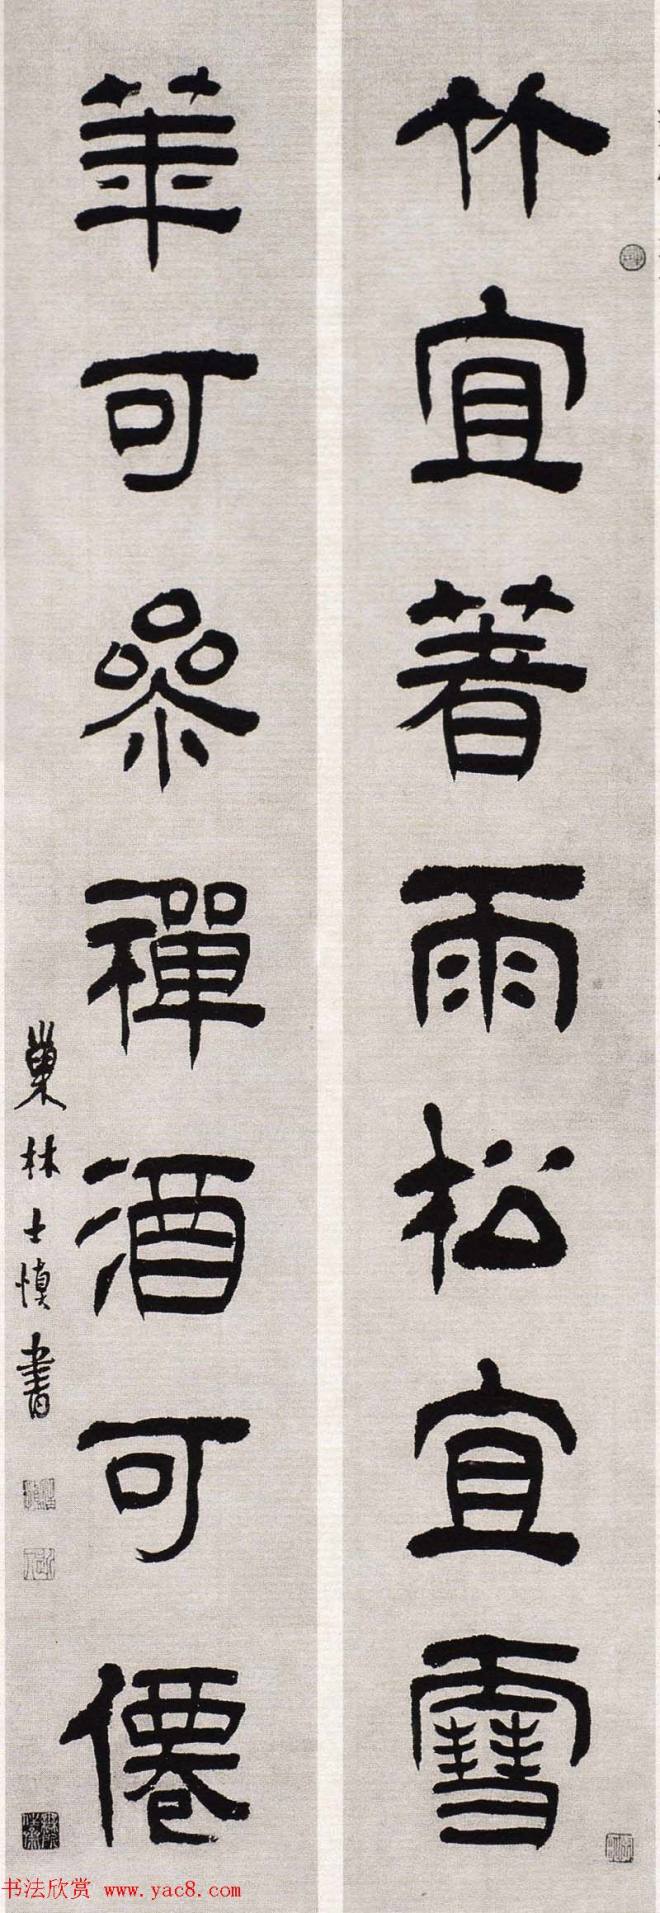 竹宜著雨松宜雪
華可參禪酒可僊
巢林士慎書
书法欣赏 www.yac8.com